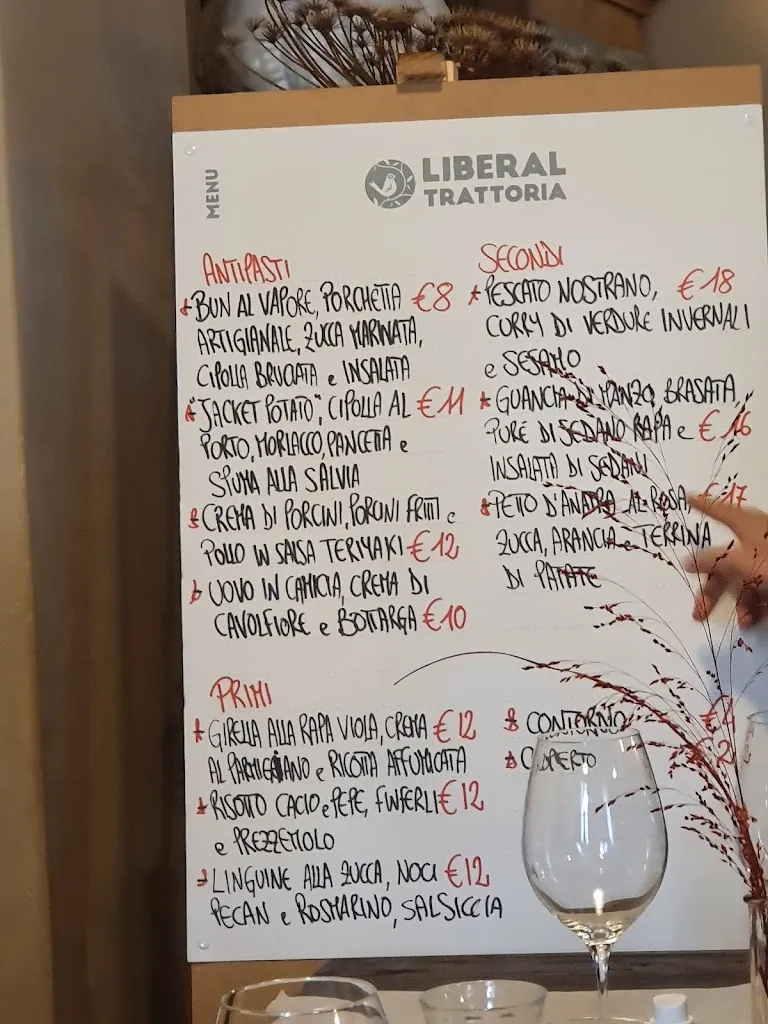 MENU
LIBERAL
TRATTORIA
ANTIPASTI
BUN AL VAPORE, PORCHETTA €8
ARTIGIANALE, ZUCCA MARINATA,
CIPOLLA BRUCIATA e INSALATA
"JACKET POTATO", CIPOLLA AL €11
PORTO, MORLACCO, PANCETTA e
SPUMA ALLA SALVIA
CREMA DI PORCINI, PORCINI FRITTI e
POLLO IN SALSA TERIYAKI €12
UOVO IN CAMICIA, CREMA DI
CAVOLFIORE e BOTTARGA €10
PRIMI
GIRELLA ALLA RAPA VIOLA, CREMA €12
AL PARMIGIANO e RICOTTA AFFUMICATA
RISOTTO CACIO e PEPE, FINFERLI €12
e PREZZEMOLO
LINGUINE ALLA ZUCCA, NOCI €12
PECAN e ROSMARINO, SALSICCIA
SECONDI
PESCATO NOSTRANO, €18
CURRY DI VERDURE INVERNALI
e SESAMO
GUANCIA DI MANZO BRASATA,
PURE DI SEDANO RAPA e €16
INSALATA DI SEDANI
PETTO D'ANATRA AL ROSA, €17
ZUCCA, ARANCIA e TERRINA
DI PATATE
CONTORNO €4
COPERTO 2